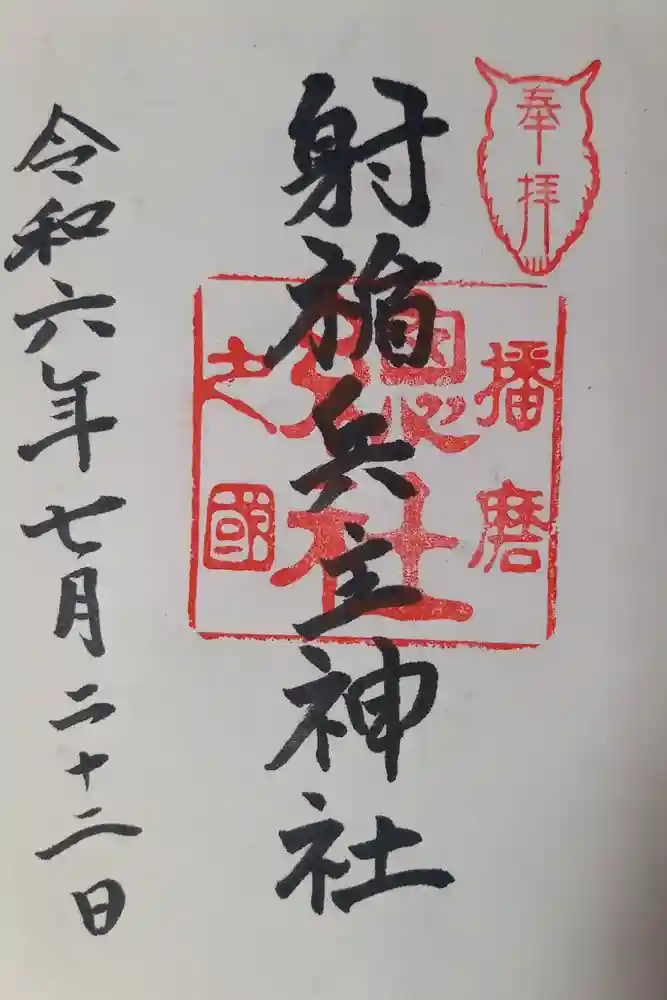 奉拝
播磨
総社
之國
射楯兵主神社
令和六年七月二十二日